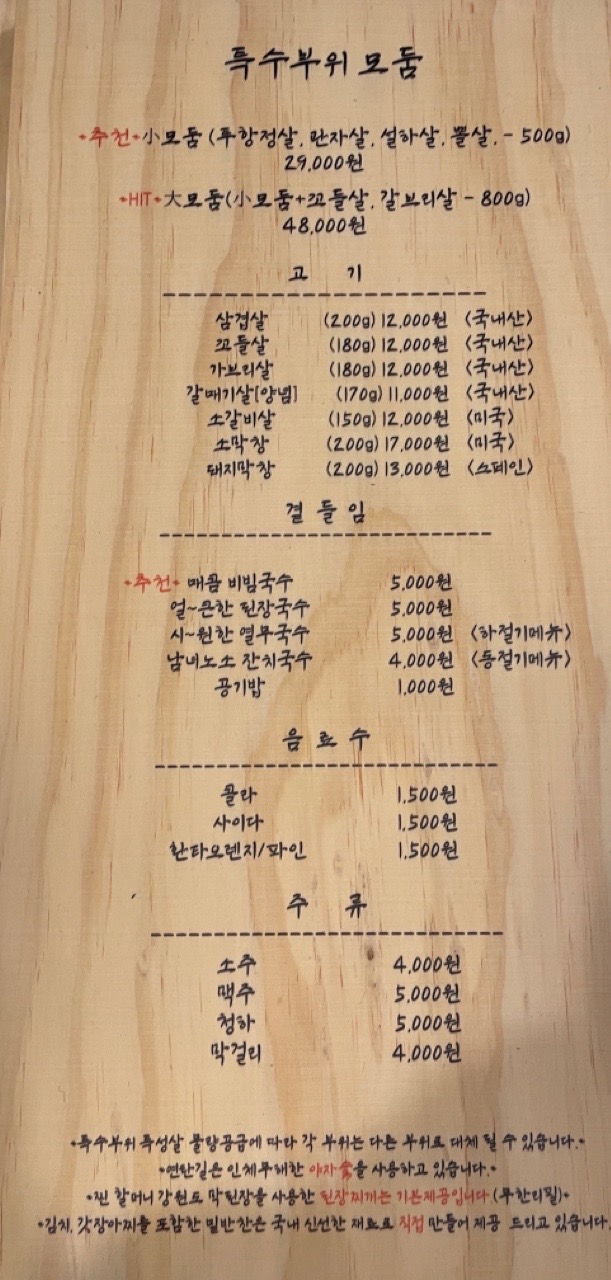 특수부위 모둠
•추천•小모둠 (뚜항정살, 만자살, 설하살, 뽈살, - 500g)
29,000원
•HIT•大모둠(小모둠+꼬들살, 갈브리살 - 800g)
48,000원
고 기
삼겹살 (200g) 12,000원 <국내산>
꼬들살 (180g) 12,000원 <국내산>
가브리살 (180g) 12,000원 <국내산>
갈매기살[양념] (170g) 11,000원 <국내산>
소갈비살 (150g) 12,000원 <미국>
소막창 (200g) 17,000원 <미국>
돼지막창 (200g) 13,000원 <스페인>
곁들임
•추천• 매콤 비빔국수 5,000원
얼~큰한 된장국수 5,000원
시~원한 열무국수 5,000원 <하절기메뉴>
남녀노소 잔치국수 4,000원 <동절기메뉴>
공기밥 1,000원
음료수
콜라 1,500원
사이다 1,500원
환타오렌지/파인 1,500원
주 류
소주 4,000원
맥주 5,000원
청하 5,000원
막걸리 4,000원
•특수부위 특성살 물량공급에 따라 각 부위는 다른 부위로 대체 될 수 있습니다.•
•연탄길은 인체무해한 야자숯을 사용하고 있습니다.•
•찐 할머니 강원도 막된장을 사용한 된장찌개는 기본제공입니다 (무한리필)•
•김치, 갓장아찌를 포함한 밑반찬은 국내 신선한 재료로 직접 만들어 제공 드리고 있습니다.